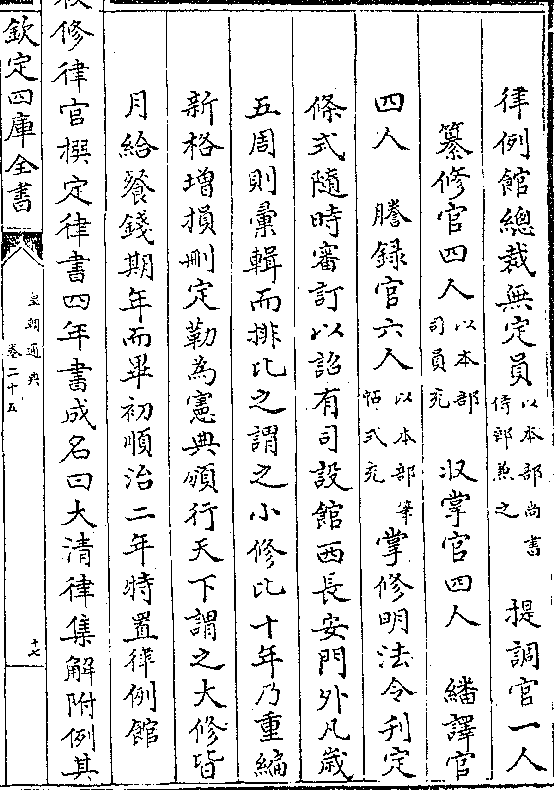 律例館總裁無定員以本部尚書侍郎兼之 提調官一人
纂修官四人以本部司員充 収掌官四人 繙譯官
四人 謄録官六人以本部筆帖式充 掌修明法令刋定
條式隨時審訂以詔有司設館西長安門外凡歲
五周則彙輯而排比之謂之小修比十年乃重編
新格增損刪定勒為憲典頒行天下謂之大修皆
月給餐錢期年而畢初順治二年特置律例館
修律官撰定律書四年書成名曰大清律集解附例其
欽定四庫全書
皇朝通典
卷二十五
十七